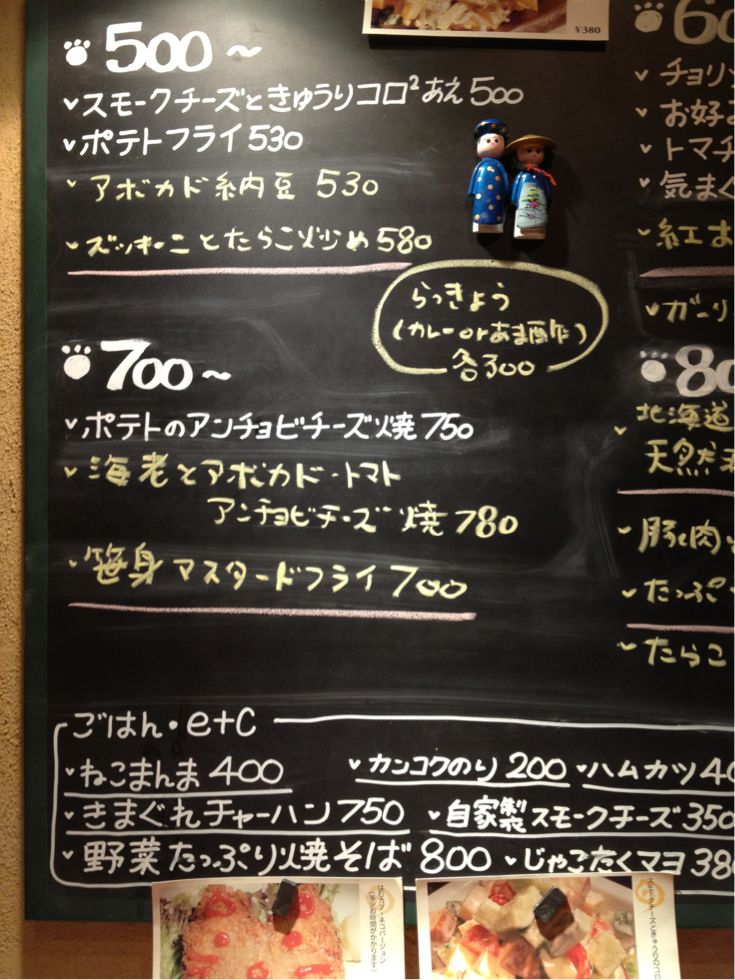 ¥380
500～
スモークチーズときゅうりコロ²あえ 500
ポテトフライ 530
アボカド納豆 530
ズッキーニとたらこ炒め 580
らっきょう
(カレーorあま酢)
各300
700～
ポテトのアンチョビチーズ焼 750
海老とアボカド・トマト
アンチョビチーズ焼 780
笹身マスタードフライ 700
チョリソ
お好
トマチ
気まぐ
紅
ガーリ
80
北海道
天然
豚肉
たっぷ
たらこ
ごはん・etc
ねこまんま 400
カンコクのり 200
ハムカツ 40
きまぐれチャーハン 750
自家製スモークチーズ 350
野菜たっぷり焼そば 800
じゃこたくマヨ 380
はむカツ・ネコバージョン
(多少お時間がかかります)
スモークチーズときゅうりのコロ